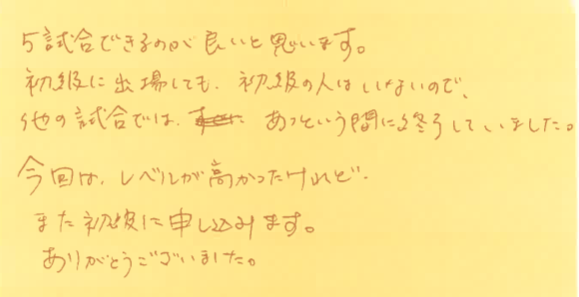 5試合できるのが良いと思います。
初級に出場しても、初級の人はいないので、
他の試合では、あっという間に終了していました。
今回は、レベルが高かったけれど、
また初級に申し込みます。
ありがとうございました。